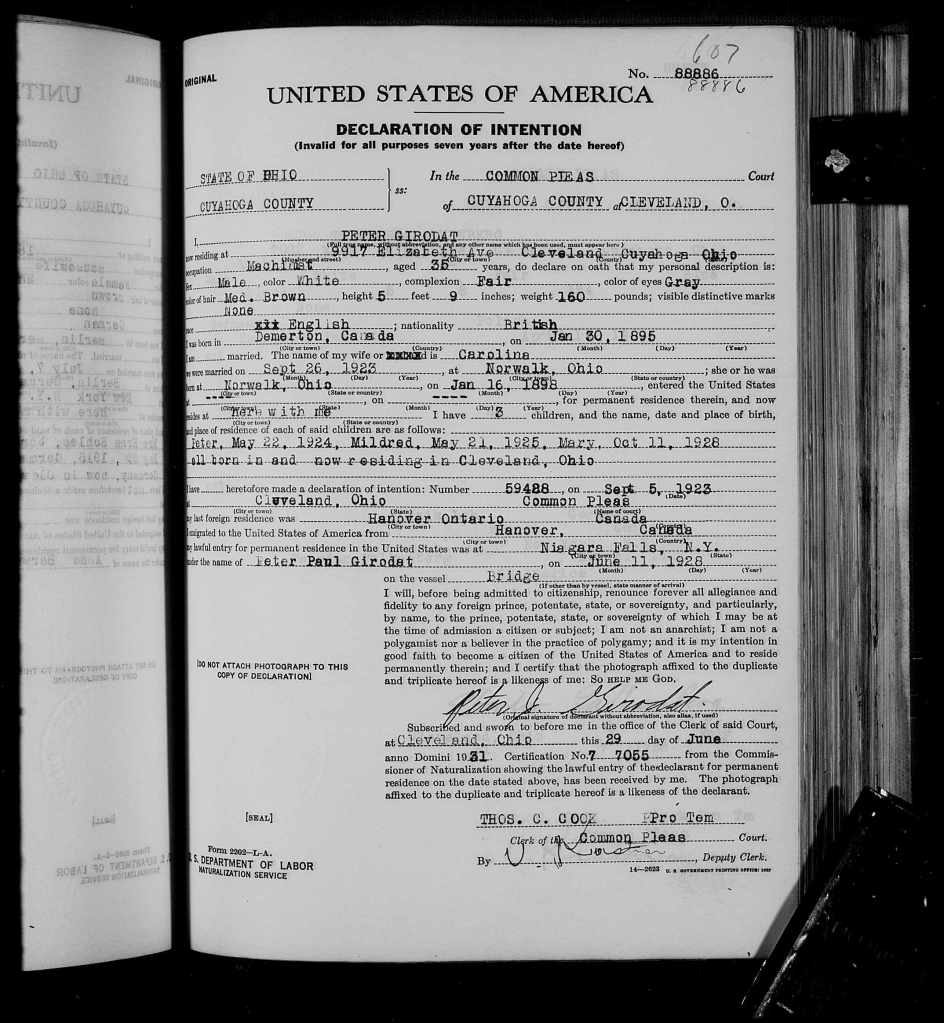 607
ORIGINAL
No. 88886
88886
UNITED STATES OF AMERICA
DECLARATION OF INTENTION
(Invalid for all purposes seven years after the date hereof)
STATE OF OHIO
In the COMMON PLEAS Court
ss:
CUYAHOGA COUNTY
of CUYAHOGA COUNTY at CLEVELAND, O.
I, PETER GIRODAT
(Full true name, without abbreviation, and any other name which has been used, must appear here)
now residing at 9917 Elizabeth Ave Cleveland Cuyahoga Ohio
(Number and street) (City or town) (County) (State)
occupation Machinist, aged 35 years, do declare on oath that my personal description is:
Sex Male, color White, complexion Fair, color of eyes Gray
color of hair Med. Brown, height 5 feet 9 inches; weight 160 pounds; visible distinctive marks
None
race xxx English; nationality British
I was born in Demerton, Canada, on Jan 30, 1895
(City or town) (Country) (Month) (Day) (Year)
I am married. The name of my wife or xxxxxd is Carolina
we were married on Sept 26, 1923, at Norwalk, Ohio; she or he was
(Month) (Day) (Year) (City or town) (State or country)
born at Norwalk, Ohio, on Jan 16, 1898, entered the United States
(City or town) (State or country) (Month) (Day) (Year)
at ----, on ----, for permanent residence therein, and now
(City or town) (State) (Month) (Day) (Year)
resides at Here with me I have 3 children, and the name, date and place of birth,
(City or town) (State or country)
and place of residence of each of said children are as follows:
Peter, May 22, 1924, Mildred, May 21, 1925, Mary, Oct 11, 1928
all born in and now residing in Cleveland, Ohio
I have heretofore made a declaration of intention: Number 59488, on Sept 5, 1923
(Date)
at Cleveland, Ohio Common Pleas
(City or town) (State) (Name of court)
my last foreign residence was Hanover Ontario Canada
(City or town) (Country)
I emigrated to the United States of America from Hanover, Canada
(City or town) (Country)
my lawful entry for permanent residence in the United States was at Niagara Falls, N.Y.
(City or town) (State)
under the name of Peter Paul Girodat, on June 11, 1928
(Month) (Day) (Year)
on the vessel Bridge
(If other than by vessel, state manner of arrival)
I will, before being admitted to citizenship, renounce forever all allegiance and
fidelity to any foreign prince, potentate, state, or sovereignty, and particularly,
by name, to the prince, potentate, state, or sovereignty of which I may be at
the time of admission a citizen or subject; I am not an anarchist; I am not a
polygamist nor a believer in the practice of polygamy; and it is my intention in
good faith to become a citizen of the United States of America and to reside
permanently therein; and I certify that the photograph affixed to the duplicate
and triplicate hereof is a likeness of me: SO HELP ME GOD.
[DO NOT ATTACH PHOTOGRAPH TO THIS
COPY OF DECLARATION]
Peter J. Girodat.
(Original signature of declarant without abbreviation, also alias, if used)
Subscribed and sworn to before me in the office of the Clerk of said Court,
at Cleveland, Ohio this 29 day of June
anno Domini 1931. Certification No. 7 7055 from the Commis-
sioner of Naturalization showing the lawful entry of the declarant for permanent
residence on the date stated above, has been received by me. The photograph
affixed to the duplicate and triplicate hereof is a likeness of the declarant.
[SEAL]
THOS. C. COOK Pro Tem
Clerk of the Common Pleas Court.
By , Deputy Clerk.
Form 2202—L-A.
U. S. DEPARTMENT OF LABOR
NATURALIZATION SERVICE
14—2623 U. S. GOVERNMENT PRINTING OFFICE: 1927